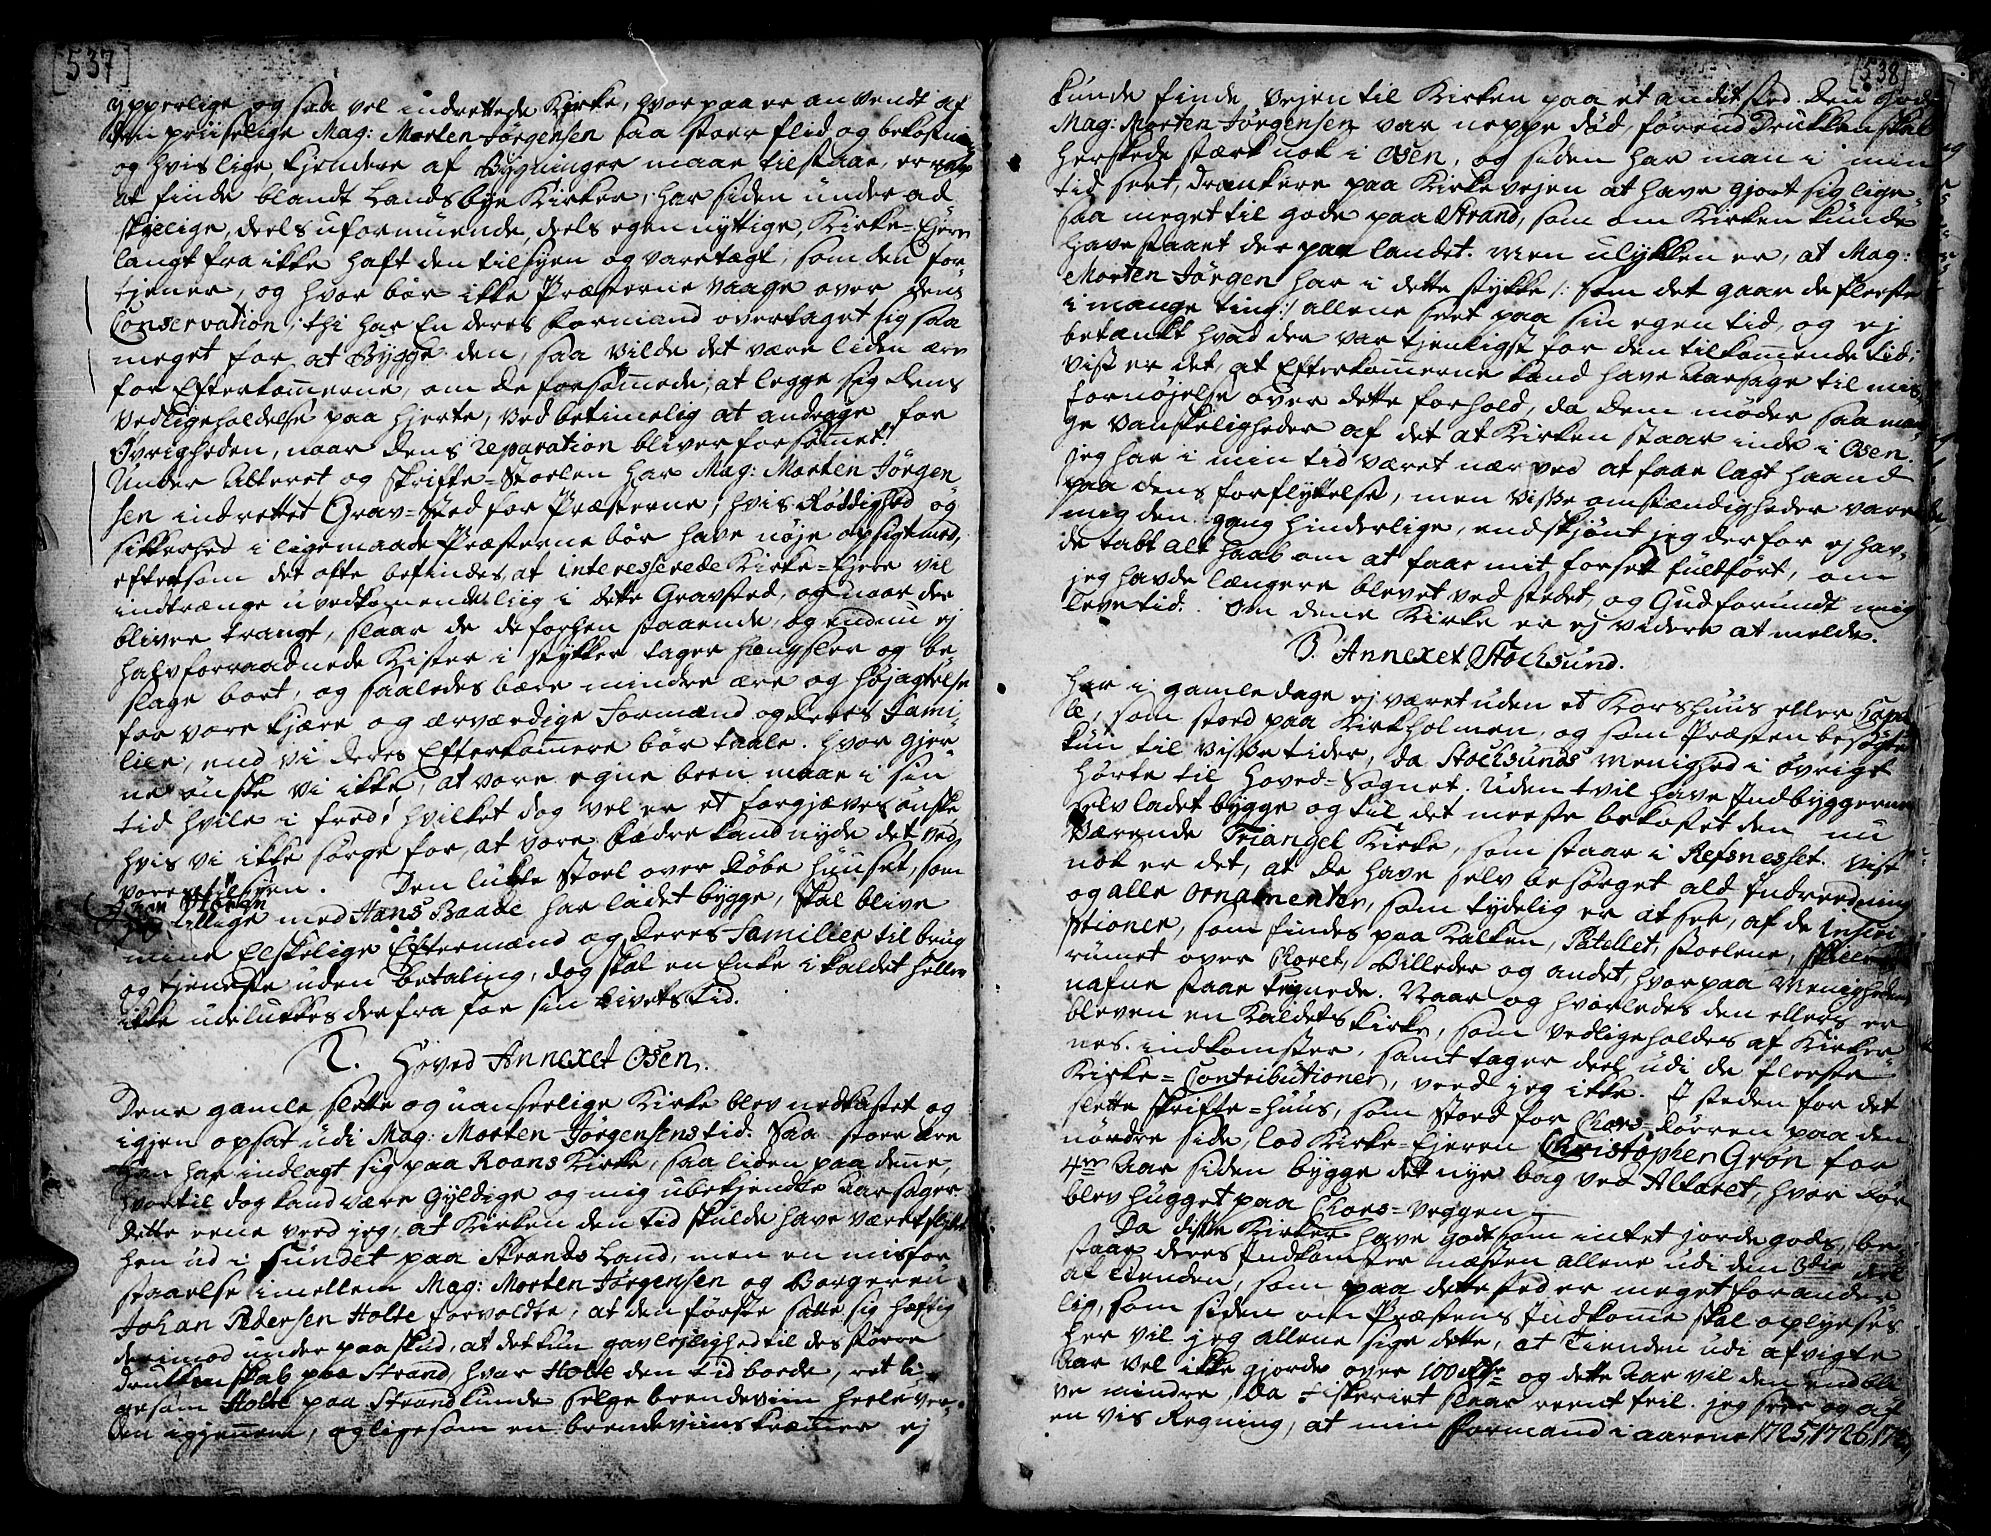 [537]
ypperlige og saa vel indrettede Kirke, hvorpaa er anvendt af
den priiselige Mag: Morten Jörgensen saa stoer flid og bekostning
og hvis lige kjendere af Bygninger maae tilstaae, er rar
at finde blandt Landsbye Kirker, har siden under ad-
skjelige, deels uformuende, deels egennyttige, Kirke-Ejere
langt fra ikke haft den tilsyen og varetægt, som den for-
tjener, og hvor bör ikke Præsterne vaage over dens
Conservation; thi har En deres Formand overtaget sig saa
meget for at Bygge den, saa vilde det være liden ære
for Efterkom̄erne, om de forsöm̄ede, at legge sig dens
Vedligeholdelse paa hjerte, ved betimelig at andrage for
Övrigheden, naar dens reparation bliver forsömet.
Under Alteret og Skrifte-Stoelen har Mag: Morten Jörgen
sen indrettet Grav-Sted for Præsterne, hvis Röddighed og
sikkerhed i ligemaade Præsterne bör have nöje opsigt med,
eftersom det ofte befindes, at interesserede Kirke-Ejere vil
indtrænge uvedkom̄ende Liig i dette Gravsted, og naar der
bliver trangt, slaar de de forhen staaende, og endnu ej
halvforraadnede Kister i stykker, tager hængsler og be
slage bort, og saaledes bære mindre ære og höjagtelse
for vore kjære og ærværdige Formænd og deres Fami-
lier, end vi deres Efterkom̄ere bör taale. Hvor gjer-
ne önske vi ikke, at vore egne been maae i sin
tid hvile i fred! hvilket dog vel er et forgjæves önske,
hvis vi ikke sörge for, at vore Fædre kand nyde det ved
vores tilsyen. Den lukte Stoel over Döbe huuset, som
jeg tillige med Hans Baade har ladet bygge, skal blive
mine Elskelige Eftermænd og deres Familier til brug
og tjeneste uden betaling, dog skal en Enke i kaldet heller
ikke udelukkes derfra for sin Livets Tid.
2. Hoved Annexet Osen.
Dene gamle slette og uanseelige Kirke blev nedkastet og
igjen opsat udi Mag: Morten Jörgensens tid. Saa stor Ære
han har indlagt sig paa Roans Kirke, saa liden paa denne,
hvortil dog kand være Gyldige og mig ubekjendte Aarsager.
Dette eene veed jeg, at Kirken den tid skulde have været flyttet
hen ud i Sundet paa Strands Land, men en misfor
staaelse imellem Mag: Morten Jörgensen og Borgeren
Johan Pedersen Holte forvoldte, at den förste satte sig hæftig
derimod under paaskud, at det kun gav lejlighed til des större
drukkenskab paa Strand, hvor Holte den tid boede, ret li-
gesom Holte paa Strand kunde selge brendeviin heele ver-
den igjennem, og ligesom en brendeviins kræm̄er ej
[538]
kunde finde Vejen til Kirken paa et andet sted. Den gode
Mag: Morten Jörgensen var neppe död, förend Drukkenskab
herskede stærk nok i Osen, og siden har man i min
tid seet, drankere paa Kirkevejen at have gjort sig lige-
saa meget til gode paa Strand, som om Kirken kunde
have staaet der paa landet. Men ulykken er, at Mag:
Morten Jörgen har i dette stykke /: som det gaar de fleeste
i mange ting:/ allene seet paa sin egen tid, og ej
betænkt hvad der var tjenligst for den tilkom̄ende tid;
vist er det, at Efterkom̄erne kand have Aarsage til mis-
fornöjelse over dette forhold, da dem möder saa man-
ge vanskeligheder af det at Kirken staar inde i Osen.
jeg har i min tid været nær ved at faae lagt haand
paa dens forflyttelse, men visse omstændigheder vare
mig den gang hinderlige, endskjönt jeg derfor ej hav-
de tabt alt haab om at faae mit forsett fuldfört, om
jeg havde længere blevet ved stedet, og Gud forundt mig
levetid. Om dene Kirke er ej videre at melde.
3. Annexet Stocksund.
Har i gamle dage ej været uden et Korshuus eller Capel
le, som stoed paa Kirkholmen, og som Præsten besögte
kun til visse tider, da Stocksunds Menighed i övrigt
hörte til Hoved-Sognet. Uden tvil have Indbyggerne
selv ladet bygge og til det meeste bekostet den nu
værende Triangel Kirke, som staar i Refsnesset. Vist
nok er det, at de have selv besörget ald Indreedning
og alle Ornamenter, som tydelig er at see, af de Inscri
ptioner, som findes paa Kalken, Patellet, Stoelene, Skille
rumet over Choret, Billeder og andet, hvorpaa Menighedens
nafne staar tegnede. Naar og hvorledes den ellers er
bleven en Kaldets Kirke, som vedligeholdes af Kirker-
nes indkomster, samt tager deel udi de fleeste
Kirke-Contributioner, veed jeg ikke. I steden for det
slette Skrifte-huus, som stoed for Chors-Dörren paa den
nördre side, lod Kirke-Ejeren Christopher Grön for
4re Aar siden bygge det nye bag ved Alteret, hvor Dör
blev hugget paa Chors-Veggen.
Da disse Kirker have godt som intet jordegods, be-
staar deres Indkomster næsten allene udi den 3die deel
af Tienden, som paa dette sted er meget forander
lig, som siden om Præstens Indkom̄e skal oplyses.
her vil jeg allene sige dette, at Tienden udi afvigte
Aar vel ikke gjorde over 100 rdr og dette Aar vil den end bli
ve mindre, da Fiskeriet slaar reent feil. jeg seer og af
en vis Regning, at min Formand i aarene 1725, 1726, 172